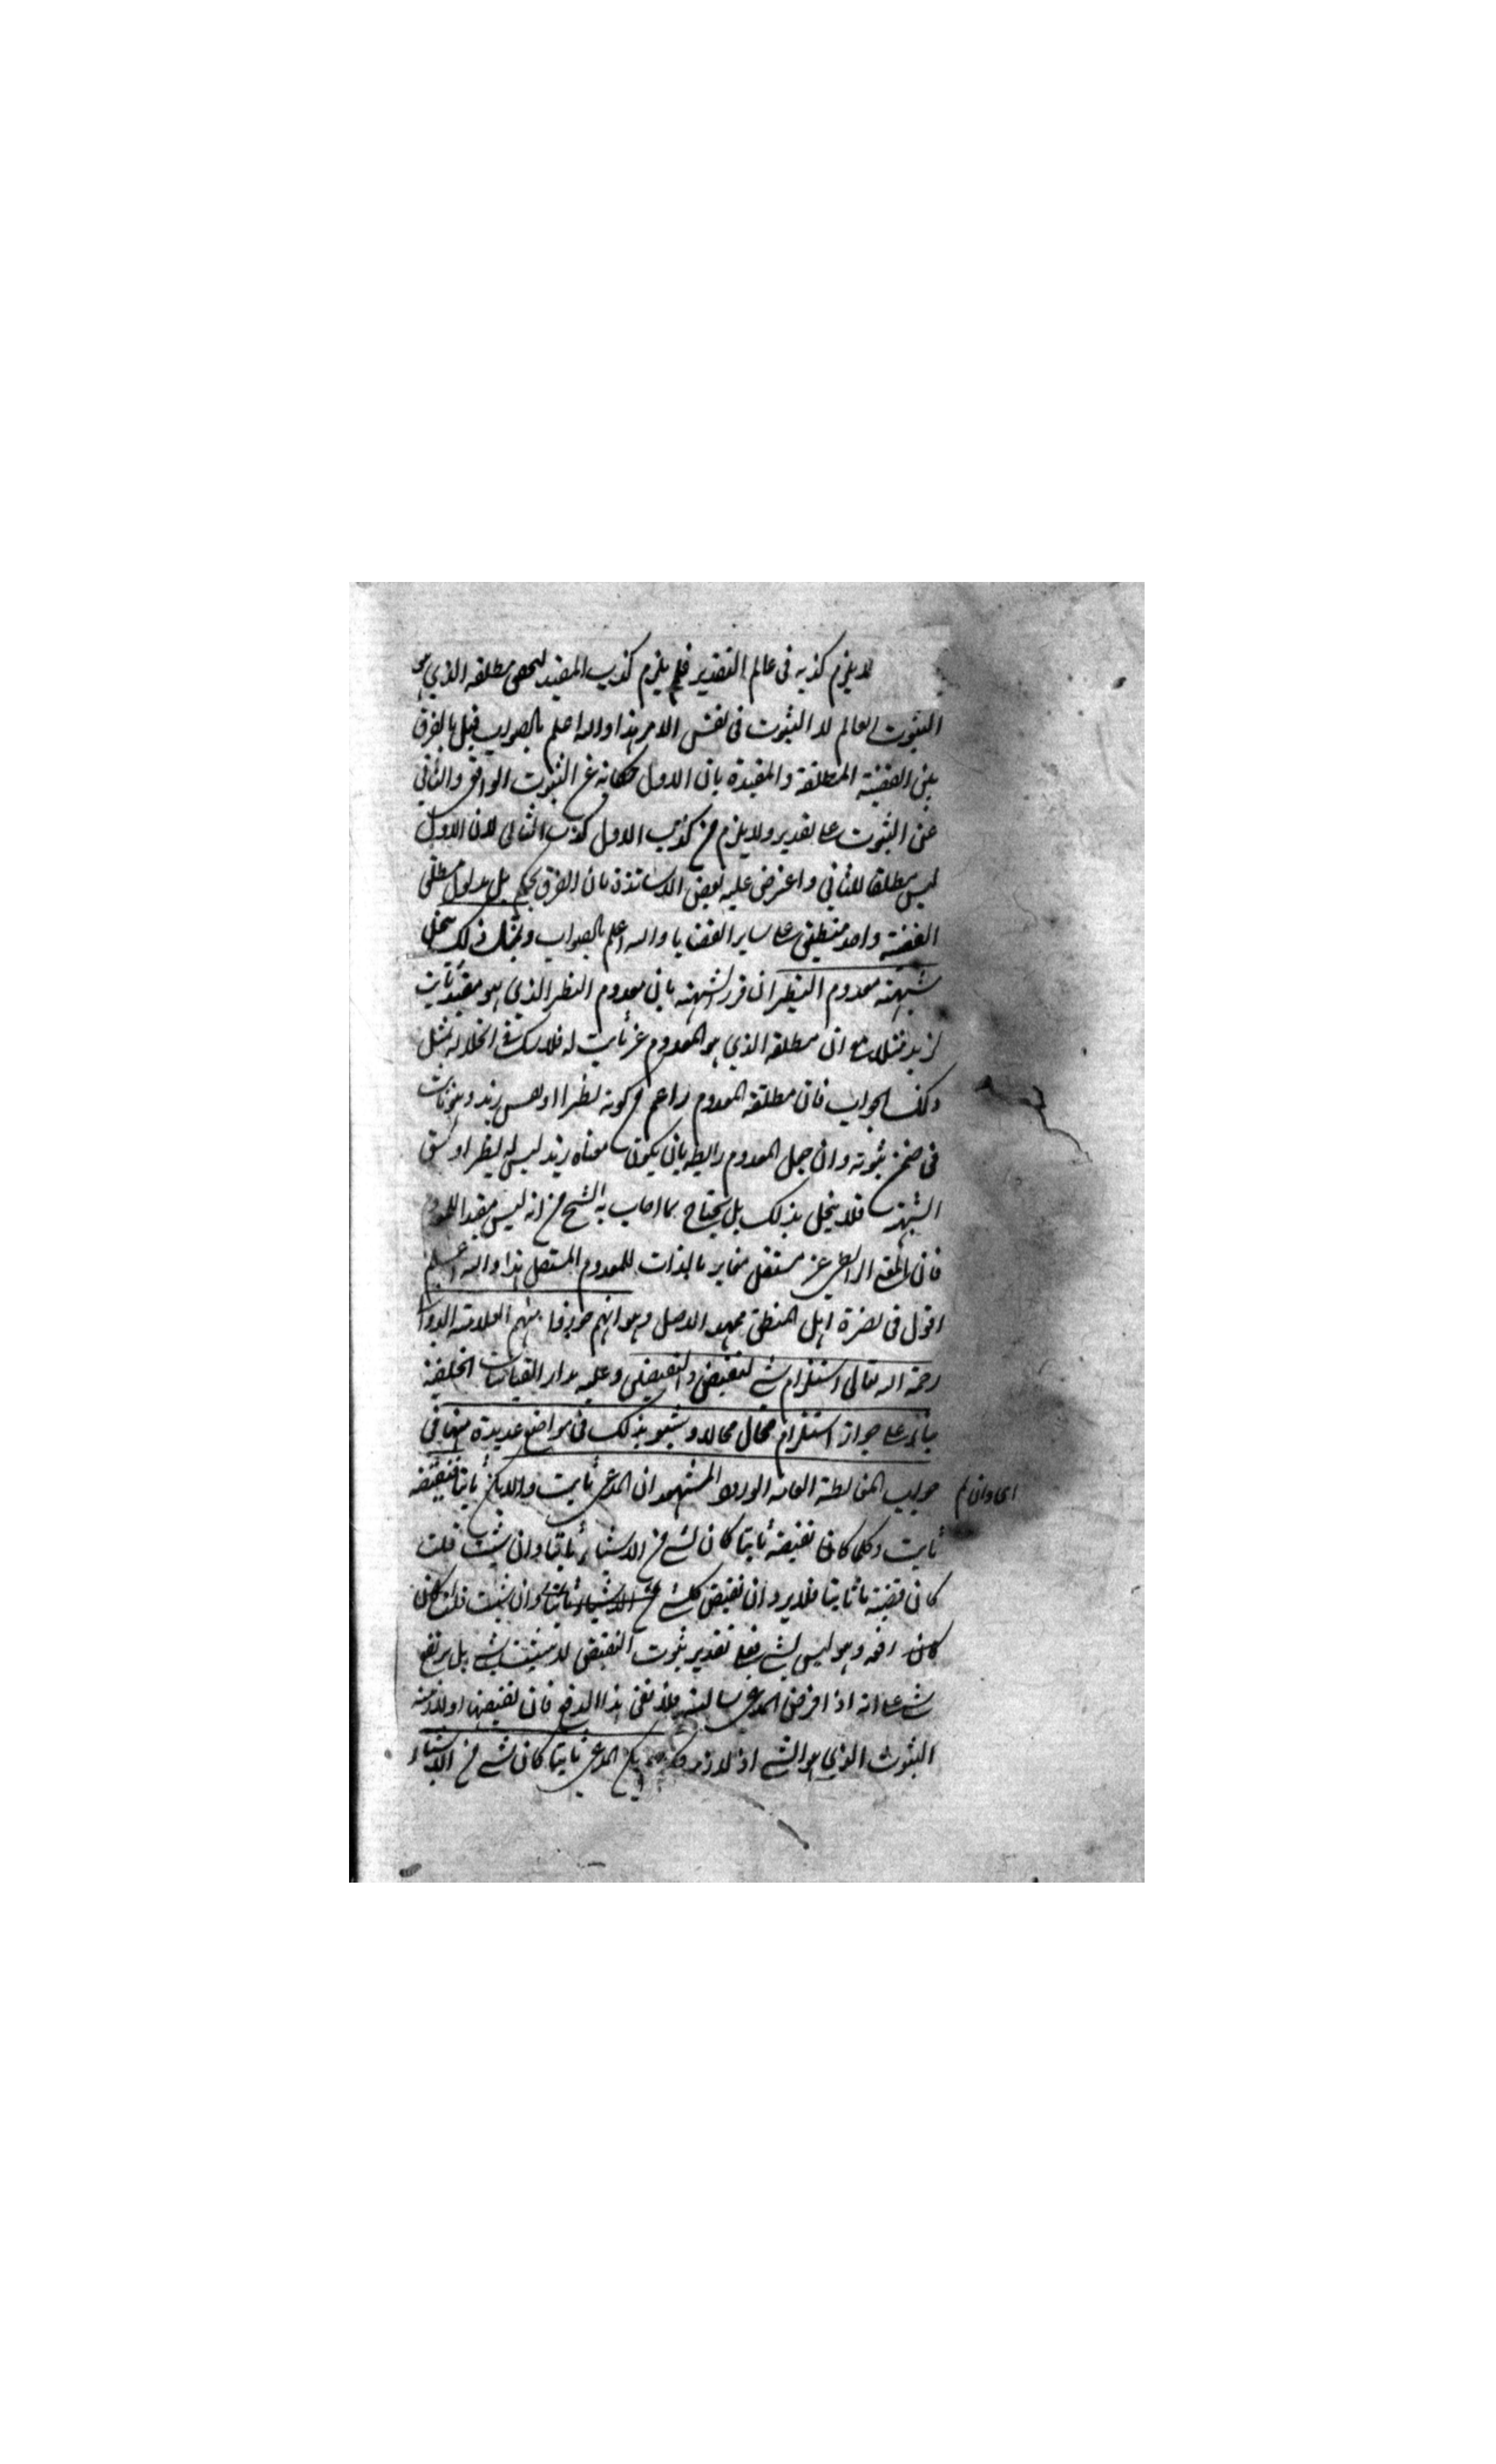 لا يلزم كذبه في عالم التقدير فلم يلزم كذب المقيد لتحقق مطلقه الذي هو
الثبوت العالم لا الثبوت في نفس الامر هذا والله اعلم بالصواب قيل بالفرق
بين القضية المطلقة والمقيدة بان الاول حكاية عن الثبوت الواقع والثاني
عن الثبوت على تقدير ولا يلزم من كذب الاول كذب الثاني لان الاول
ليس مطلقا للثاني واعترض عليه بعض الاساتذة بان الفرق تحكم بل مدلول مطلق
القضية واحد منطبق على ساير القضايا والله اعلم بالصواب وبمثل ذلك ينحل
شبهة معدوم النظير ان قرر الشبهة بان معدوم النظير الذي هو مقيد ثابت
لزيد مثلا مع ان مطلقه الذي هو المعدوم غير ثابت له فلا شك في انحلاله بمثل
ذلك الجواب فان مطلقه المعدوم اعم من كونه نظرا او نفس زيد وهو ثابت
في ضمن ثبوته وان جعل المعدوم رابطه بان يكون معناه زيد ليس له نظير او
الشبهة فلا ينحل بذلك بل يحتاج بما اجاب به الشيخ من انه ليس مقيدا للمعدوم
فان الرابطي غير مستقل مغاير بالذات للمعدوم المستقل هذا والله اعلم
اقول في نصرة اهل المنطق بمهد الاصل وهو انهم جوزوا منهم العلامة الدواني
رحمة الله تعالى استلزام شيء لنقيض والنقيضين وعليه مدار القياسات الخلفية
بناء على جواز استلزام محال محالا وتشبثوا بذلك في مواضع عديدة منها في
جواب المغالطة العامة الورود المشهور ان المدعى ثابت والا يكن ثابتا فنقيضه
اي وان لم
ثابت وكلما كان نقيضه ثابتا كان شيء من الاشياء ثابتا وان شئت قلت
كان قضية ما ثابتا فلا يرد ان نقيض كل شيء من الاشياء ثابتا وان شئت قلت كان
كان رفعه وهو ليس بشيء فعلى تقدير ثبوت النقيض لا يثبت شيء بل يرتفع
شيء على انه اذا فرض المدعى سالبة فلا نفي هذا الدفع فان نقيضها او لازمه
الثبوت الذي هو الشيء اذ لازم يكن المدعى ثابتا كان شيء من الاشياء